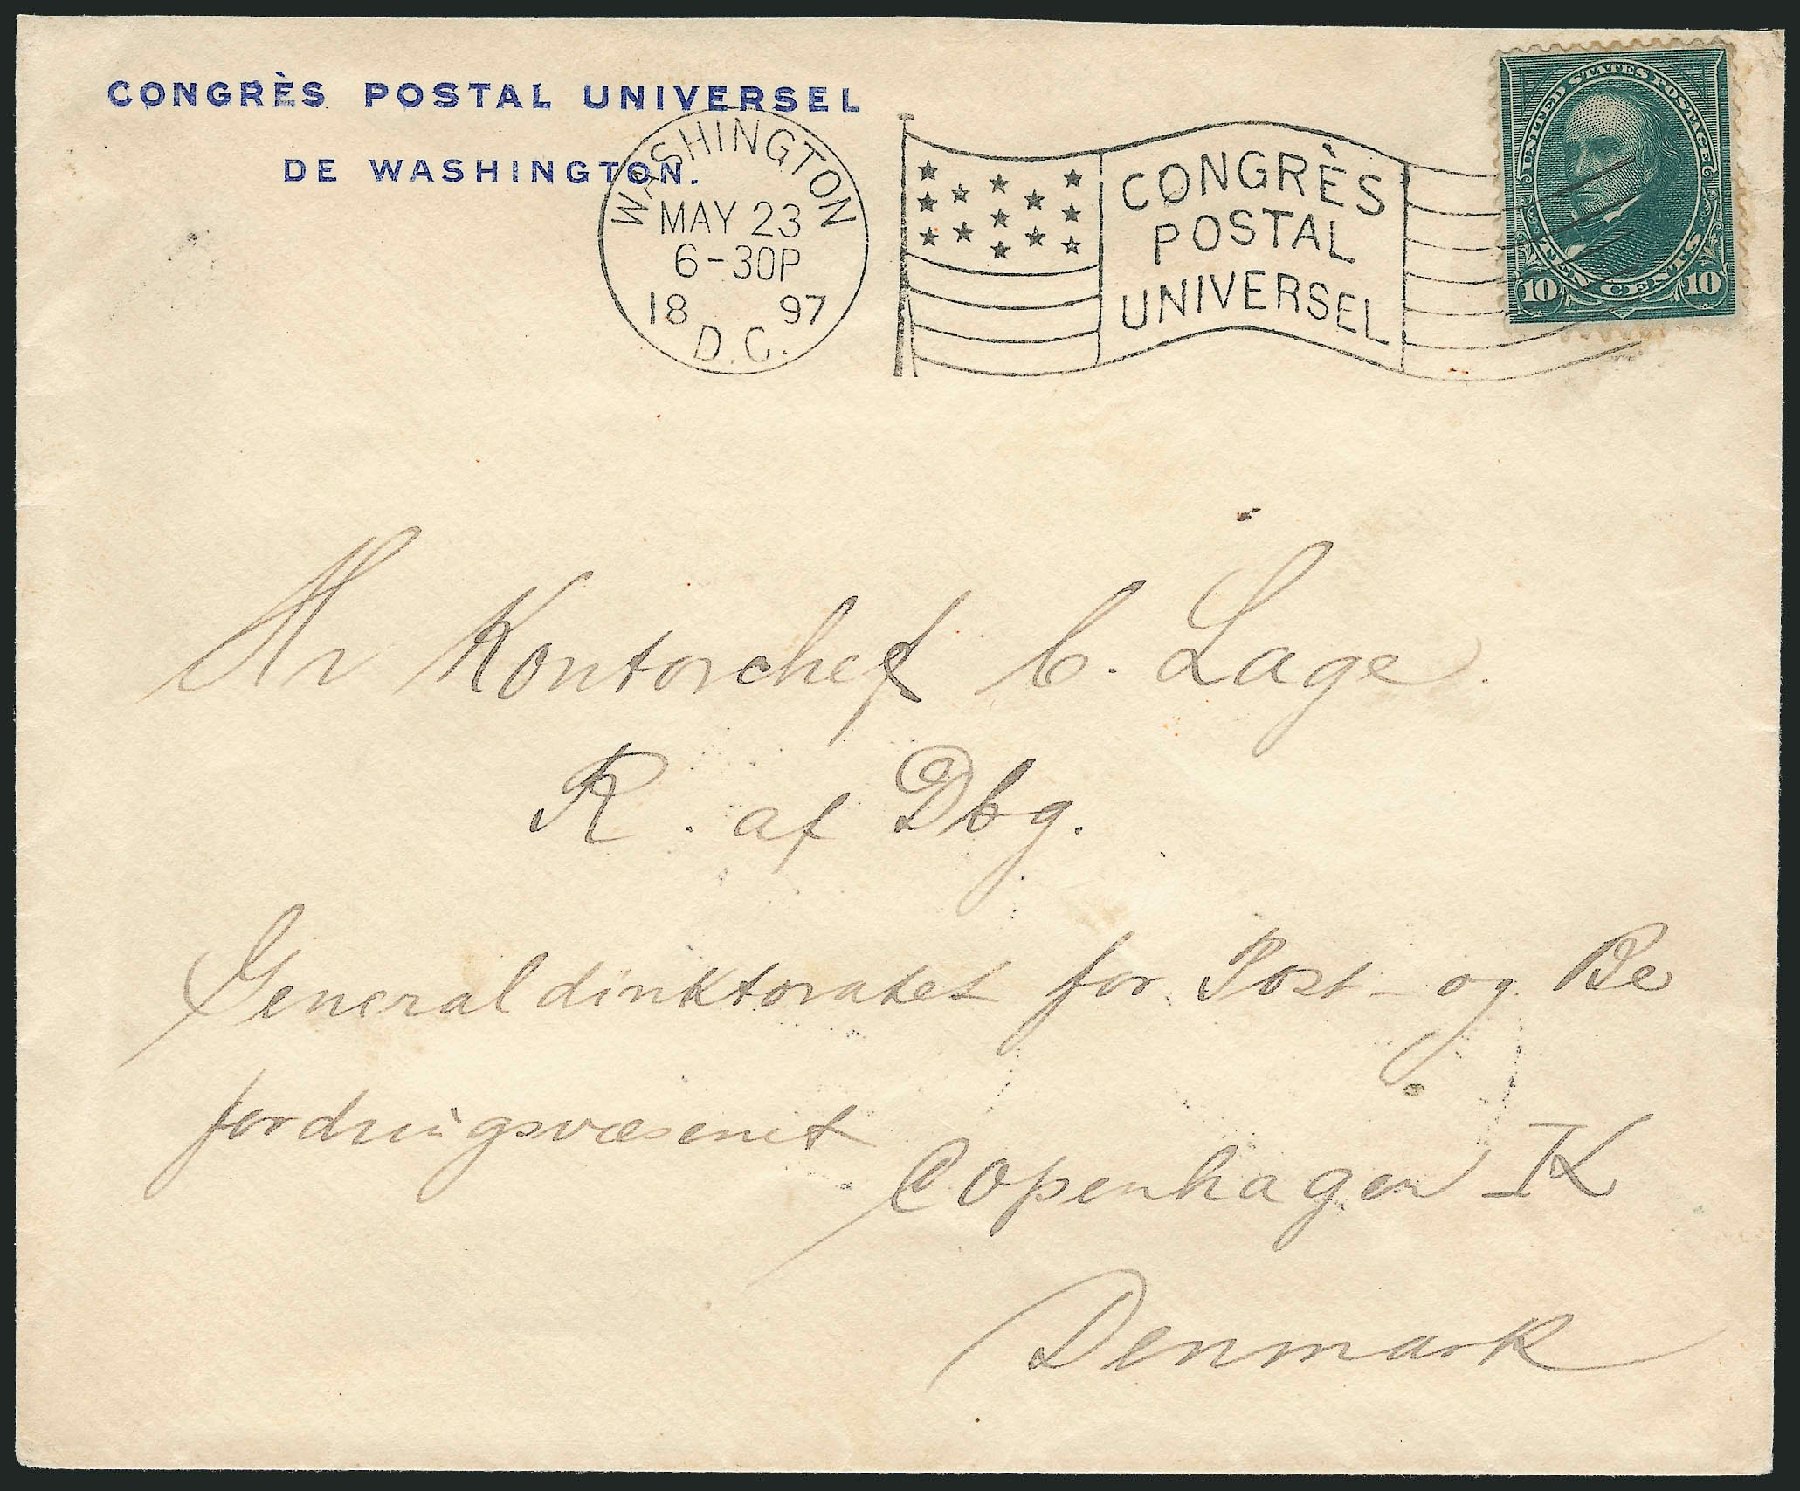 CONGRÈS POSTAL UNIVERSEL
DE WASHINGTON.
WASHINGTON
MAY 23
6-30P
18 97
D.C.
CONGRÈS
POSTAL
UNIVERSEL
UNITED STATES POSTAGE
10 TEN CENTS 10
Hr Kontorchef C. Lage.
R. af Dbg.
Generaldirektoratet for Post- og Be
fordringsvæsenet
Copenhagen K
Denmark